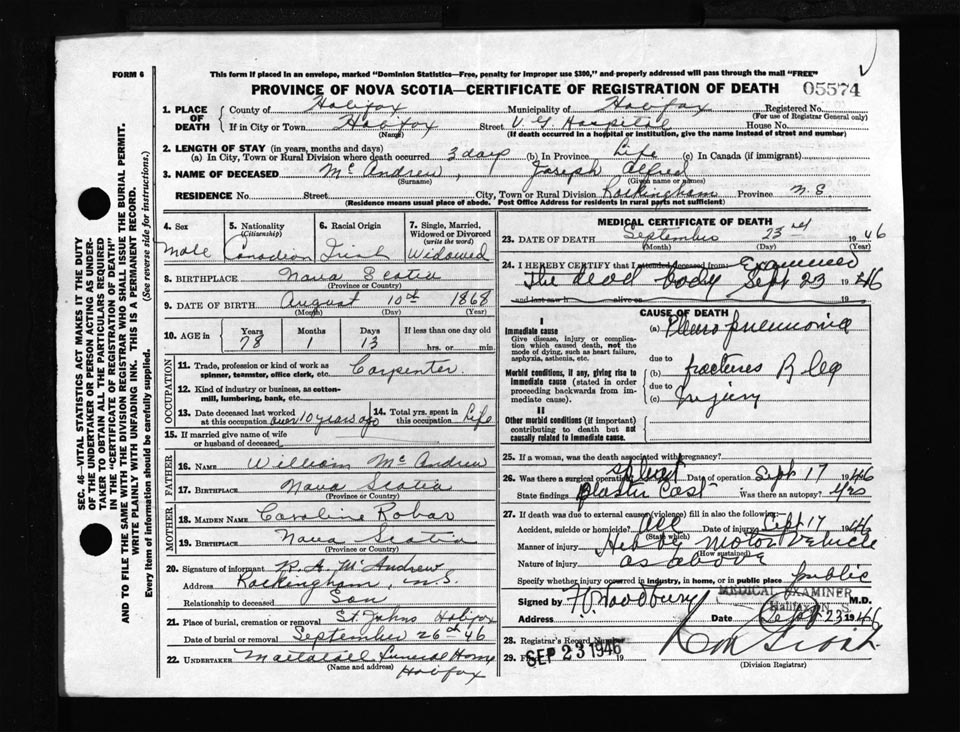 FORM 6
This form if placed in an envelope, marked "Dominion Statistics—Free, penalty for improper use $300," and properly addressed will pass through the mail "FREE"
PROVINCE OF NOVA SCOTIA—CERTIFICATE OF REGISTRATION OF DEATH
05574
1. PLACE OF DEATH
County of Halifax Municipality of Halifax Registered No.
(For use of Registrar General only)
If in City or Town Halifax Street V. G. Hospital House No.
(Name) (If death occurred in a hospital or institution, give the name instead of street and number)
2. LENGTH OF STAY (in years, months and days)
(a) In City, Town or Rural Division where death occurred 3 days (b) In Province Life (c) In Canada (if immigrant)
3. NAME OF DECEASED Mc Andrew, Joseph Alfred
(Surname) (Given name or names)
RESIDENCE No. Street City, Town or Rural Division Rockingham Province N.S.
(Residence means usual place of abode. Post Office Address for residents in rural parts not sufficient)
SEC. 46—VITAL STATISTICS ACT MAKES IT THE DUTY
OF THE UNDERTAKER OR PERSON ACTING AS UNDER-
TAKER TO OBTAIN ALL THE PARTICULARS REQUIRED
IN THE "CERTIFICATE OF REGISTRATION OF DEATH"
AND TO FILE THE SAME WITH THE DIVISION REGISTRAR WHO SHALL ISSUE THE BURIAL PERMIT.
WRITE PLAINLY WITH UNFADING INK. THIS IS A PERMANENT RECORD.
Every item of information should be carefully supplied. (See reverse side for instructions.)
4. Sex
Male
5. Nationality
(Citizenship)
Canadian
6. Racial Origin
Irish
7. Single, Married,
Widowed or Divorced
(write the word)
Widowed
8. BIRTHPLACE Nova Scotia
(Province or Country)
9. DATE OF BIRTH August 10th 1868
(Month) (Day) (Year)
10. AGE in
Years Months Days If less than one day old
78 1 13 hrs. or min.
OCCUPATION
11. Trade, profession or kind of work as
spinner, teamster, office clerk, etc. Carpenter
12. Kind of industry or business, as cotton-
mill, lumbering, bank, etc.
13. Date deceased last worked
at this occupation over 10 years ago
14. Total yrs. spent in
this occupation Life
15. If married give name of wife
or husband of deceased
FATHER
16. NAME William Mc Andrew
17. BIRTHPLACE Nova Scotia
(Province or Country)
MOTHER
18. MAIDEN NAME Caroline Robar
19. BIRTHPLACE Nova Scotia
(Province or Country)
20. Signature of informant R. A. McAndrew
Address Rockingham, N.S.
Relationship to deceased Son
21. Place of burial, cremation or removal St. Johns Halifax
Date of burial or removal September 26th 46
22. UNDERTAKER Funeral Home
(Name and address) Halifax
MEDICAL CERTIFICATE OF DEATH
23. DATE OF DEATH September 23rd 1946
(Month) (Day) (Year)
24. I HEREBY CERTIFY that I attended deceased from Examined
The dead body Sept 23 1946
and last saw h alive on 19
CAUSE OF DEATH
I
Immediate cause
Give disease, injury or complica-
tion which caused death, not the
mode of dying, such as heart failure,
asphyxia, asthenia, etc.
(a) Pleuro pneumonia
due to
Morbid conditions, if any, giving rise to
immediate cause (stated in order
proceeding backwards from im-
mediate cause).
(b) fractures R leg
due to
(c) Injury
II
Other morbid conditions (if important)
contributing to death but not
causally related to immediate cause.
25. If a woman, was the death associated with pregnancy?
26. Was there a surgical operation? splint Date of operation Sept 17 1946
State findings Plaster Cast Was there an autopsy? Yes
27. If death was due to external causes (violence) fill in also the following:
Accident, suicide or homicide? acc Date of injury Sept 17 1946
(State which)
Manner of injury Hit by Motor Vehicle
(How sustained)
Nature of injury as above
Specify whether injury occurred in industry, in home, or in public place public
MEDICAL EXAMINER
Halifax N. S.
Signed by M.D.
Address Date Sept 23 1946
28. Registrar's Record Number
29. SEP 23 1946 19
(Division Registrar)